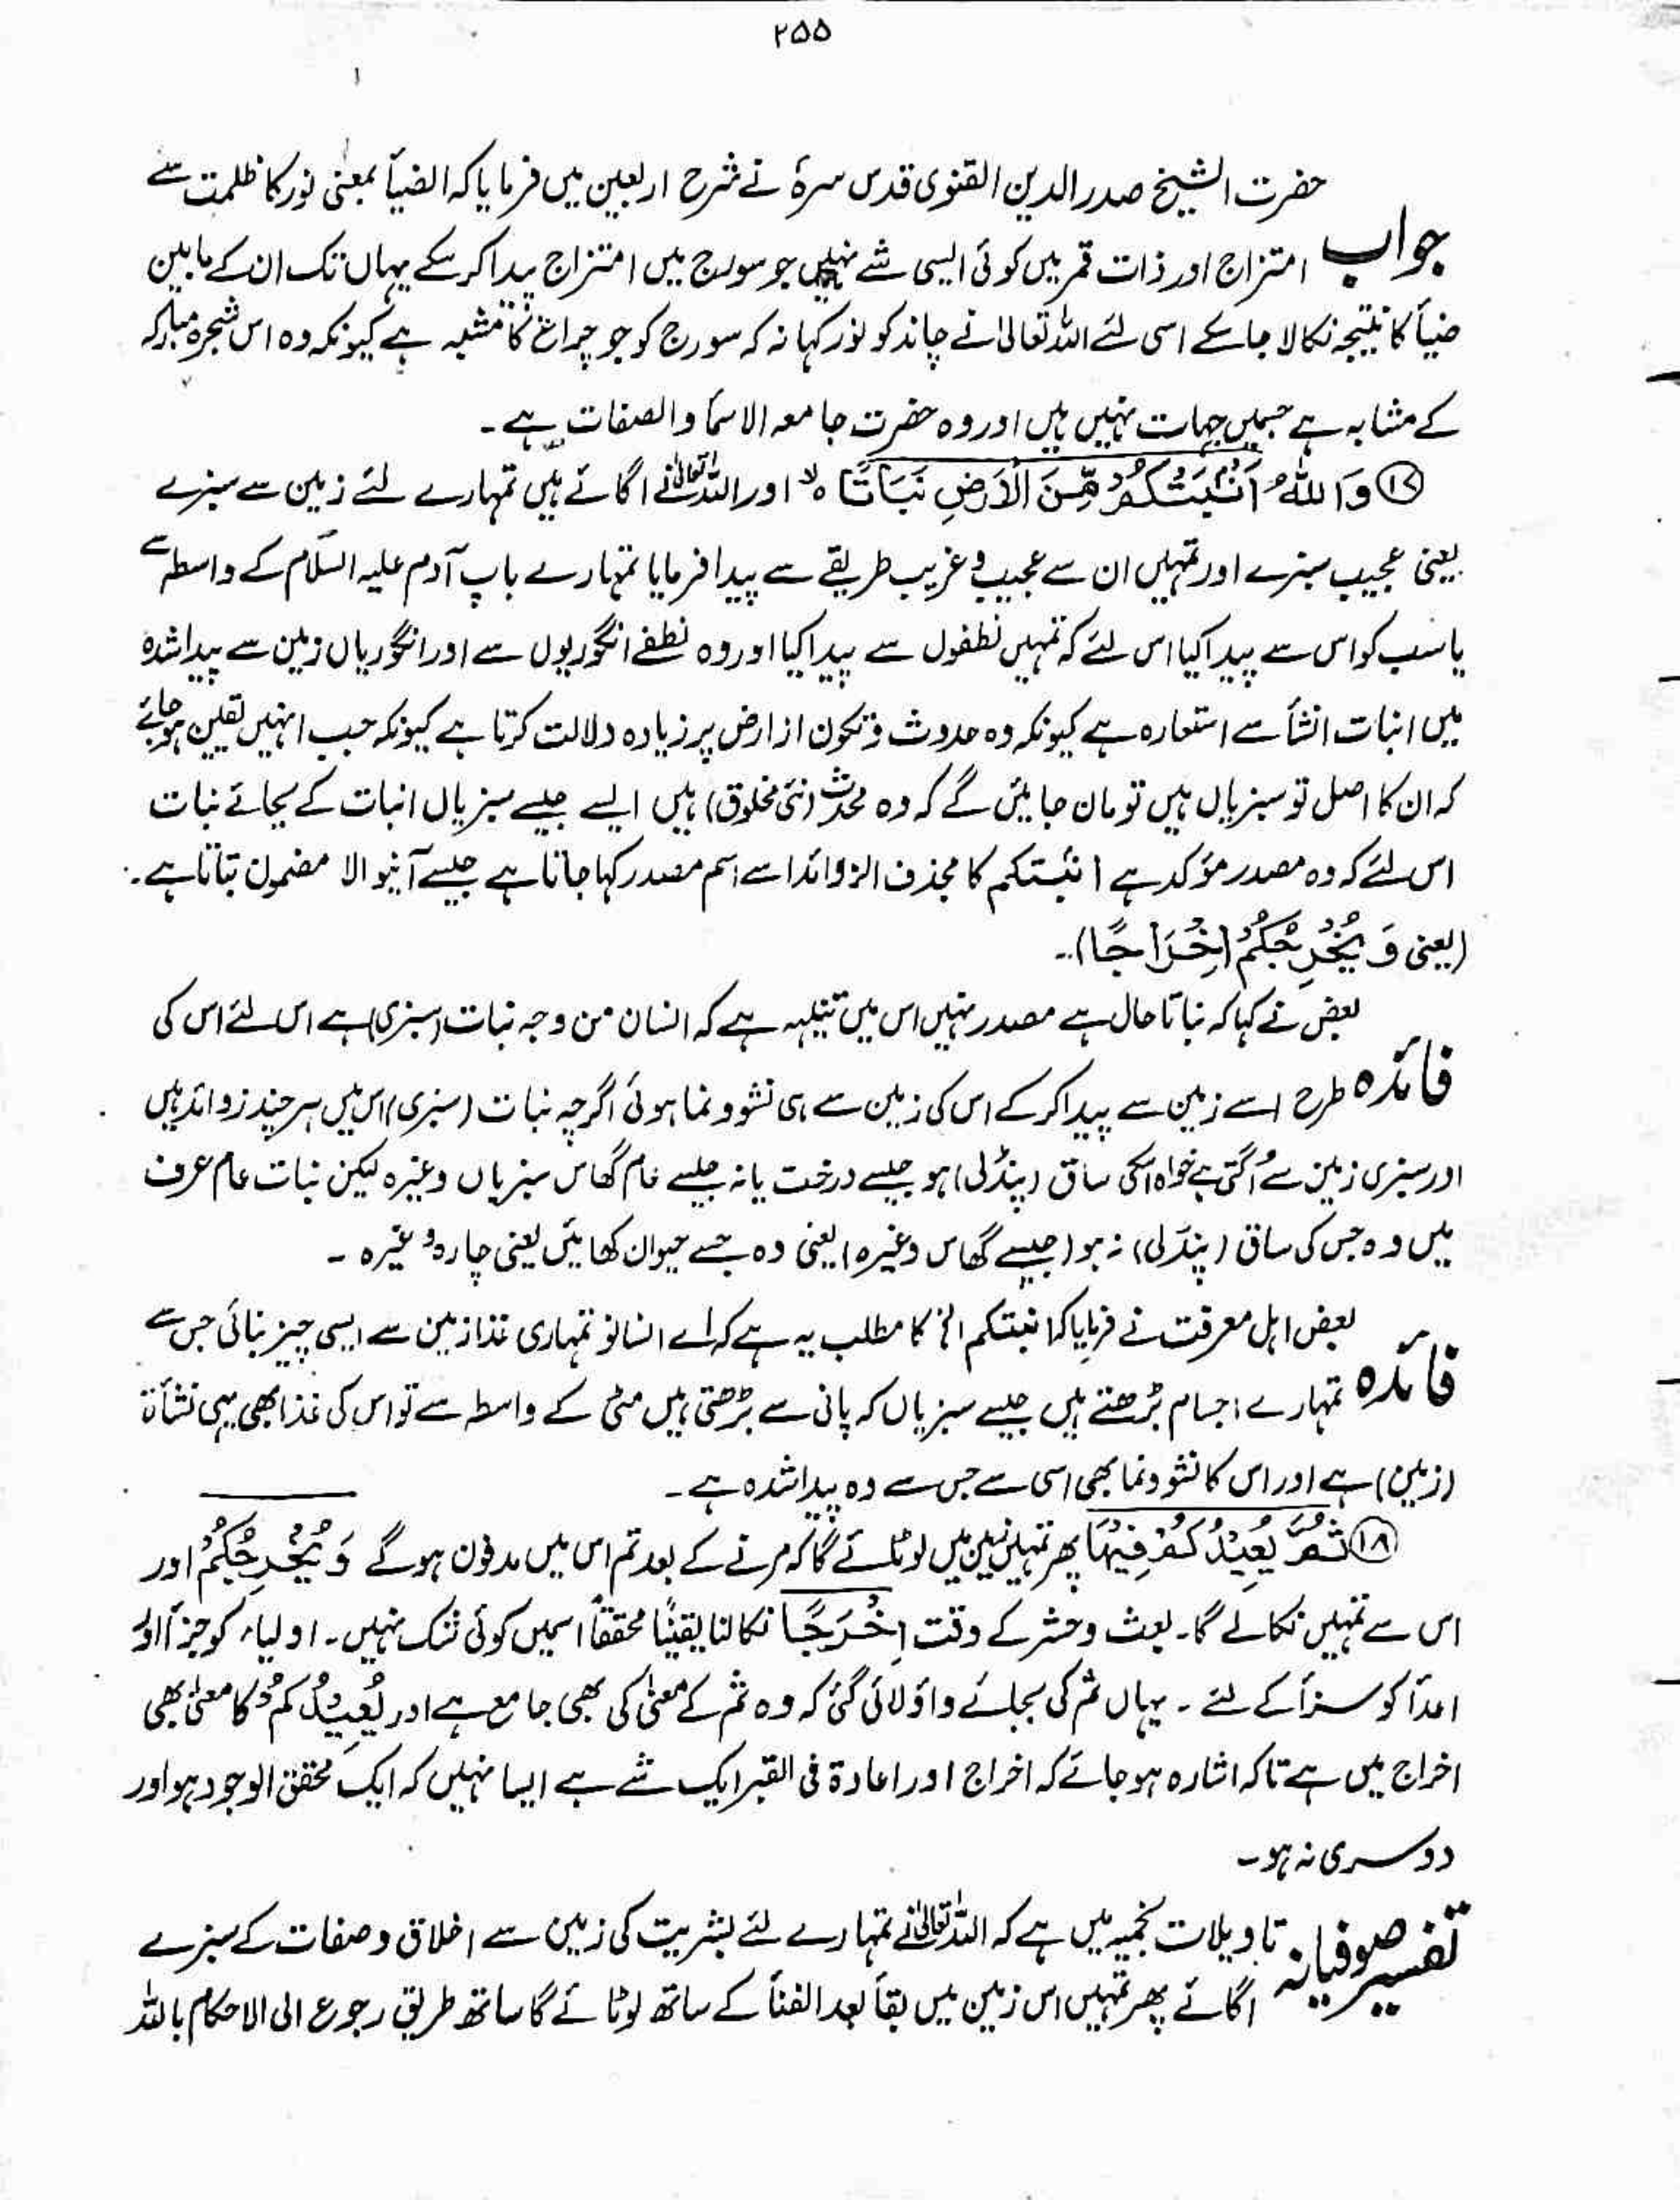 ۲۵۵
حضرت الشیخ صدر الدین القنوی قدس سرہٗ نے شرح اربعین میں فرمایا کہ الضیأ بمعنی نور کا ظلمت سے
جواب امتزاج اور ذات قمر میں کوئی ایسی شے نہیں جو سورج میں امتزاج پیدا کرسکے یہاں تک ان کے مابین
ضیأ کا نتیجہ نکالا جاسکے اسی لئے اللہ تعالیٰ نے چاند کو نور کہا نہ کہ سورج کو جو چراغ کا مشبہ ہے کیونکہ وہ اس شجرہ مبارکہ
کے مشابہ ہے جسمیں جہات نہیں ہیں اور وہ حضرت جامعہ الاسمأ والصفات ہے۔
⑰ وَاللّٰهُ اَنْۢبَتَكُمْ مِّنَ الْاَرْضِ نَبَاتًا ۙ اور اللہ تعالیٰ نے اگائے ہیں تمہارے لئے زمین سے سبزے
یعنی عجیب سبزے اور تمہیں ان سے عجیب و غریب طریقے سے پیدا فرمایا تمہارے باپ آدم علیہ السّلام کے واسطہ سے
یا سب کو اس سے پیدا کیا اس لئے کہ تمہیں نطفوں سے پیدا کیا اور وہ نطفے انگوریوں سے اور انگوریاں زمین سے پیدا شدہ
ہیں انبات انشأ سے استعارہ ہے کیونکہ وہ حدوث و تکون از ارض پر زیادہ دلالت کرتا ہے کیونکہ جب انہیں یقین ہو جائے
کہ ان کا اصل تو سبزیاں ہیں تو مان جائیں گے کہ وہ محدث (نئی مخلوق) ہیں ایسے جیسے سبزیاں انبات کے بجائے نبات
اس لئے کہ وہ مصدر مؤکد ہے انبتکم کا بحذف الزوائد اسے اسم مصدر کہا جاتا ہے جیسے آنیوالا مضمون بتاتا ہے۔
(یعنی وَ يُخْرِجُكُمْ اِخْرَاجًا)۔
بعض نے کہا کہ نباتا حال ہے مصدر نہیں اس میں تنبیہہ ہے کہ انسان من وجہ نبات (سبزی) ہے اس لئے اس کی
فائدہ طرح اسے زمین سے پیدا کرکے اس کی زمین سے ہی نشوونما ہوئی اگرچہ نبات (سبزی) اس میں ہر چند زوائد ہیں
اور سبزی زمین سے اُگتی ہے خواہ اسکی ساق (پنڈلی) ہو جیسے درخت یا نہ جیسے عام گھاس سبزیاں وغیرہ لیکن نبات عام عرف
میں وہ جس کی ساق (پنڈلی) نہ ہو (جیسے گھاس وغیرہ) یعنی وہ جسے حیوان کھائیں یعنی چارہ وغیرہ ۔
بعض اہل معرفت نے فرمایا کہ انبتکم الخ کا مطلب یہ ہے کہ اے انسانو تمہاری غذا زمین سے ایسی چیز بنائی جس سے
فائدہ تمہارے اجسام بڑھتے ہیں جیسے سبزیاں کہ پانی سے بڑھتی ہیں مٹی کے واسطہ سے تو اس کی غذا بھی یہی نشأۃ
(زمین) ہے اور اس کا نشو ونما بھی اسی سے جس سے وہ پیدا شدہ ہے ۔
⑱ ثُمَّ يُعِيْدُكُمْ فِيْهَا پھر تمہیں زمین میں لوٹائے گا کہ مرنے کے بعد تم اس میں مدفون ہوگے وَ يُخْرِجُكُمْ اور
اس سے تمہیں نکالے گا۔ بعث وحشر کے وقت اِخْرَاجًا نکالنا یقینًا محققاً اسمیں کوئی شک نہیں۔ اولیاء کو جزأ اور
اعدأ کو سزأ کے لئے ۔ یہاں ثم کی بجائے واؤ لائی گئی کہ وہ ثم کے معنیٰ کی بھی جامع ہے اور يُعِيْدُكُمْ کا معنیٰ بھی
اخراج میں ہے تاکہ اشارہ ہو جائے کہ اخراج اور اعادۃ فی القبر ایک شے ہے ایسا نہیں کہ ایک محقق الوجود ہو اور
دوسری نہ ہو۔
تفسیر صوفیانہ تاویلات نجمیہ میں ہے کہ اللہ تعالیٰ نے تمہارے لئے بشریت کی زمین سے اخلاق وصفات کے سبزے
اگائے پھر تمہیں اس زمین میں بقأ بعد الفنأ کے ساتھ لوٹائے گا ساتھ طریق رجوع الی الاحکام باللہ